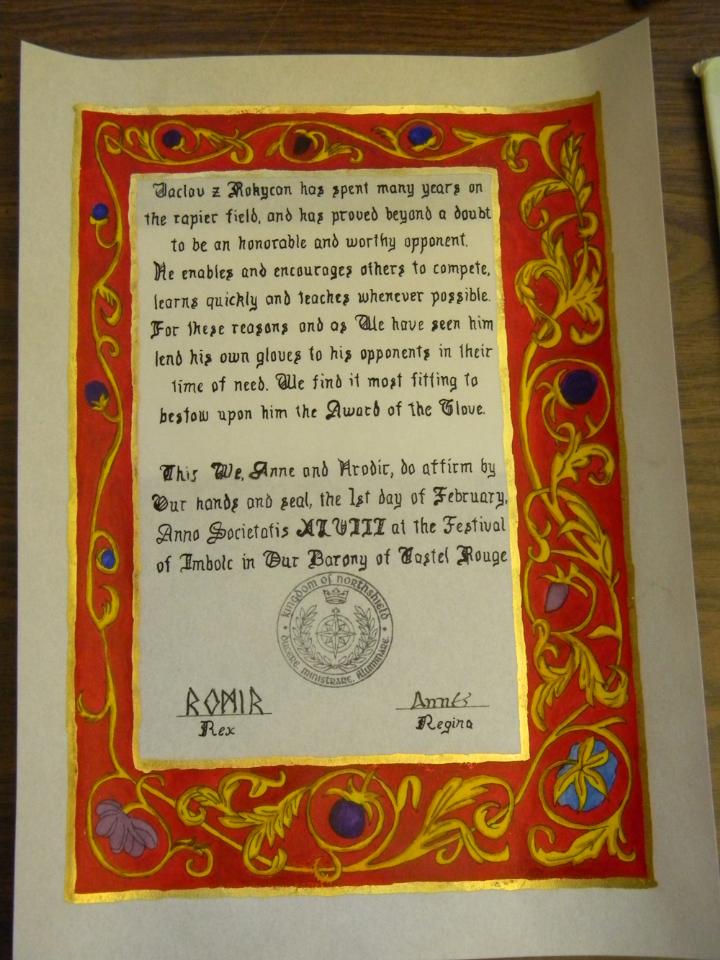 Vaclav z Rokycan has spent many years on
the rapier field, and has proved beyond a doubt
to be an honorable and worthy opponent.
He enables and encourages others to compete,
learns quickly and teaches whenever possible.
For these reasons and as We have seen him
lend his own gloves to his opponents in their
time of need. We find it most fitting to
bestow upon him the Award of the Glove.
This We, Anne and Hrodir, do affirm by
Our hands and seal, the 1st day of February,
Anno Societatis XLVIII at the Festival
of Imbolc in Our Barony of Castel Rouge
kingdom of northshield
ducere, ministrare, illuminare
Rex
Regina